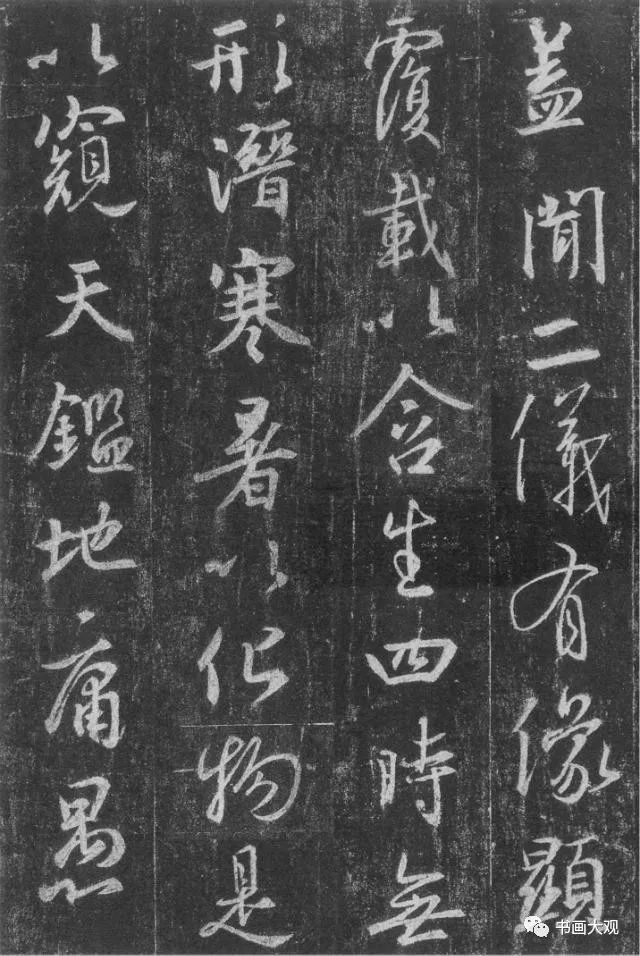 蓋聞二儀有像顯
覆載以含生四時無
形潛寒暑以化物是
以窺天鑑地庸愚
书画大观